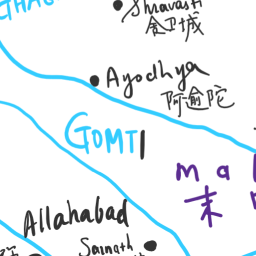 GHAG
Shravasti
舍卫城
Ayodhya
阿逾陀
GOMTI
mal
末
Allahabad
Sarnath